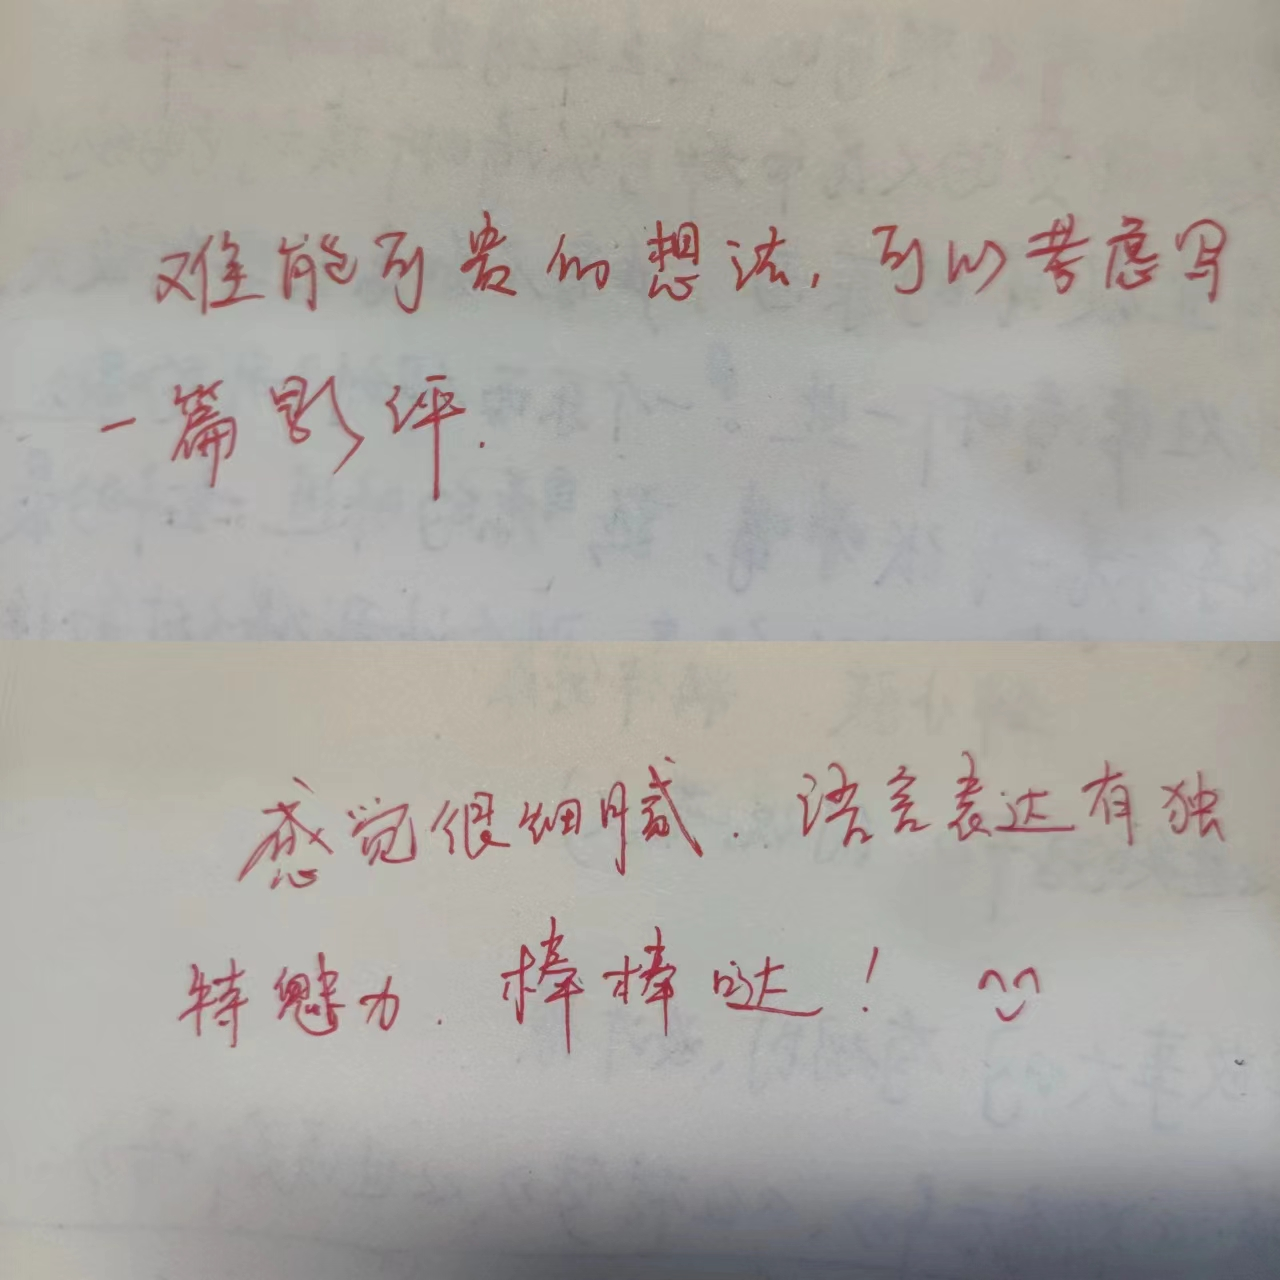 难能可贵的想法，可以考虑写
一篇影评.
感觉很细腻．语言表达有独
特魅力．棒棒哒！